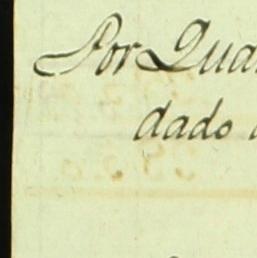 Por Qua
dado